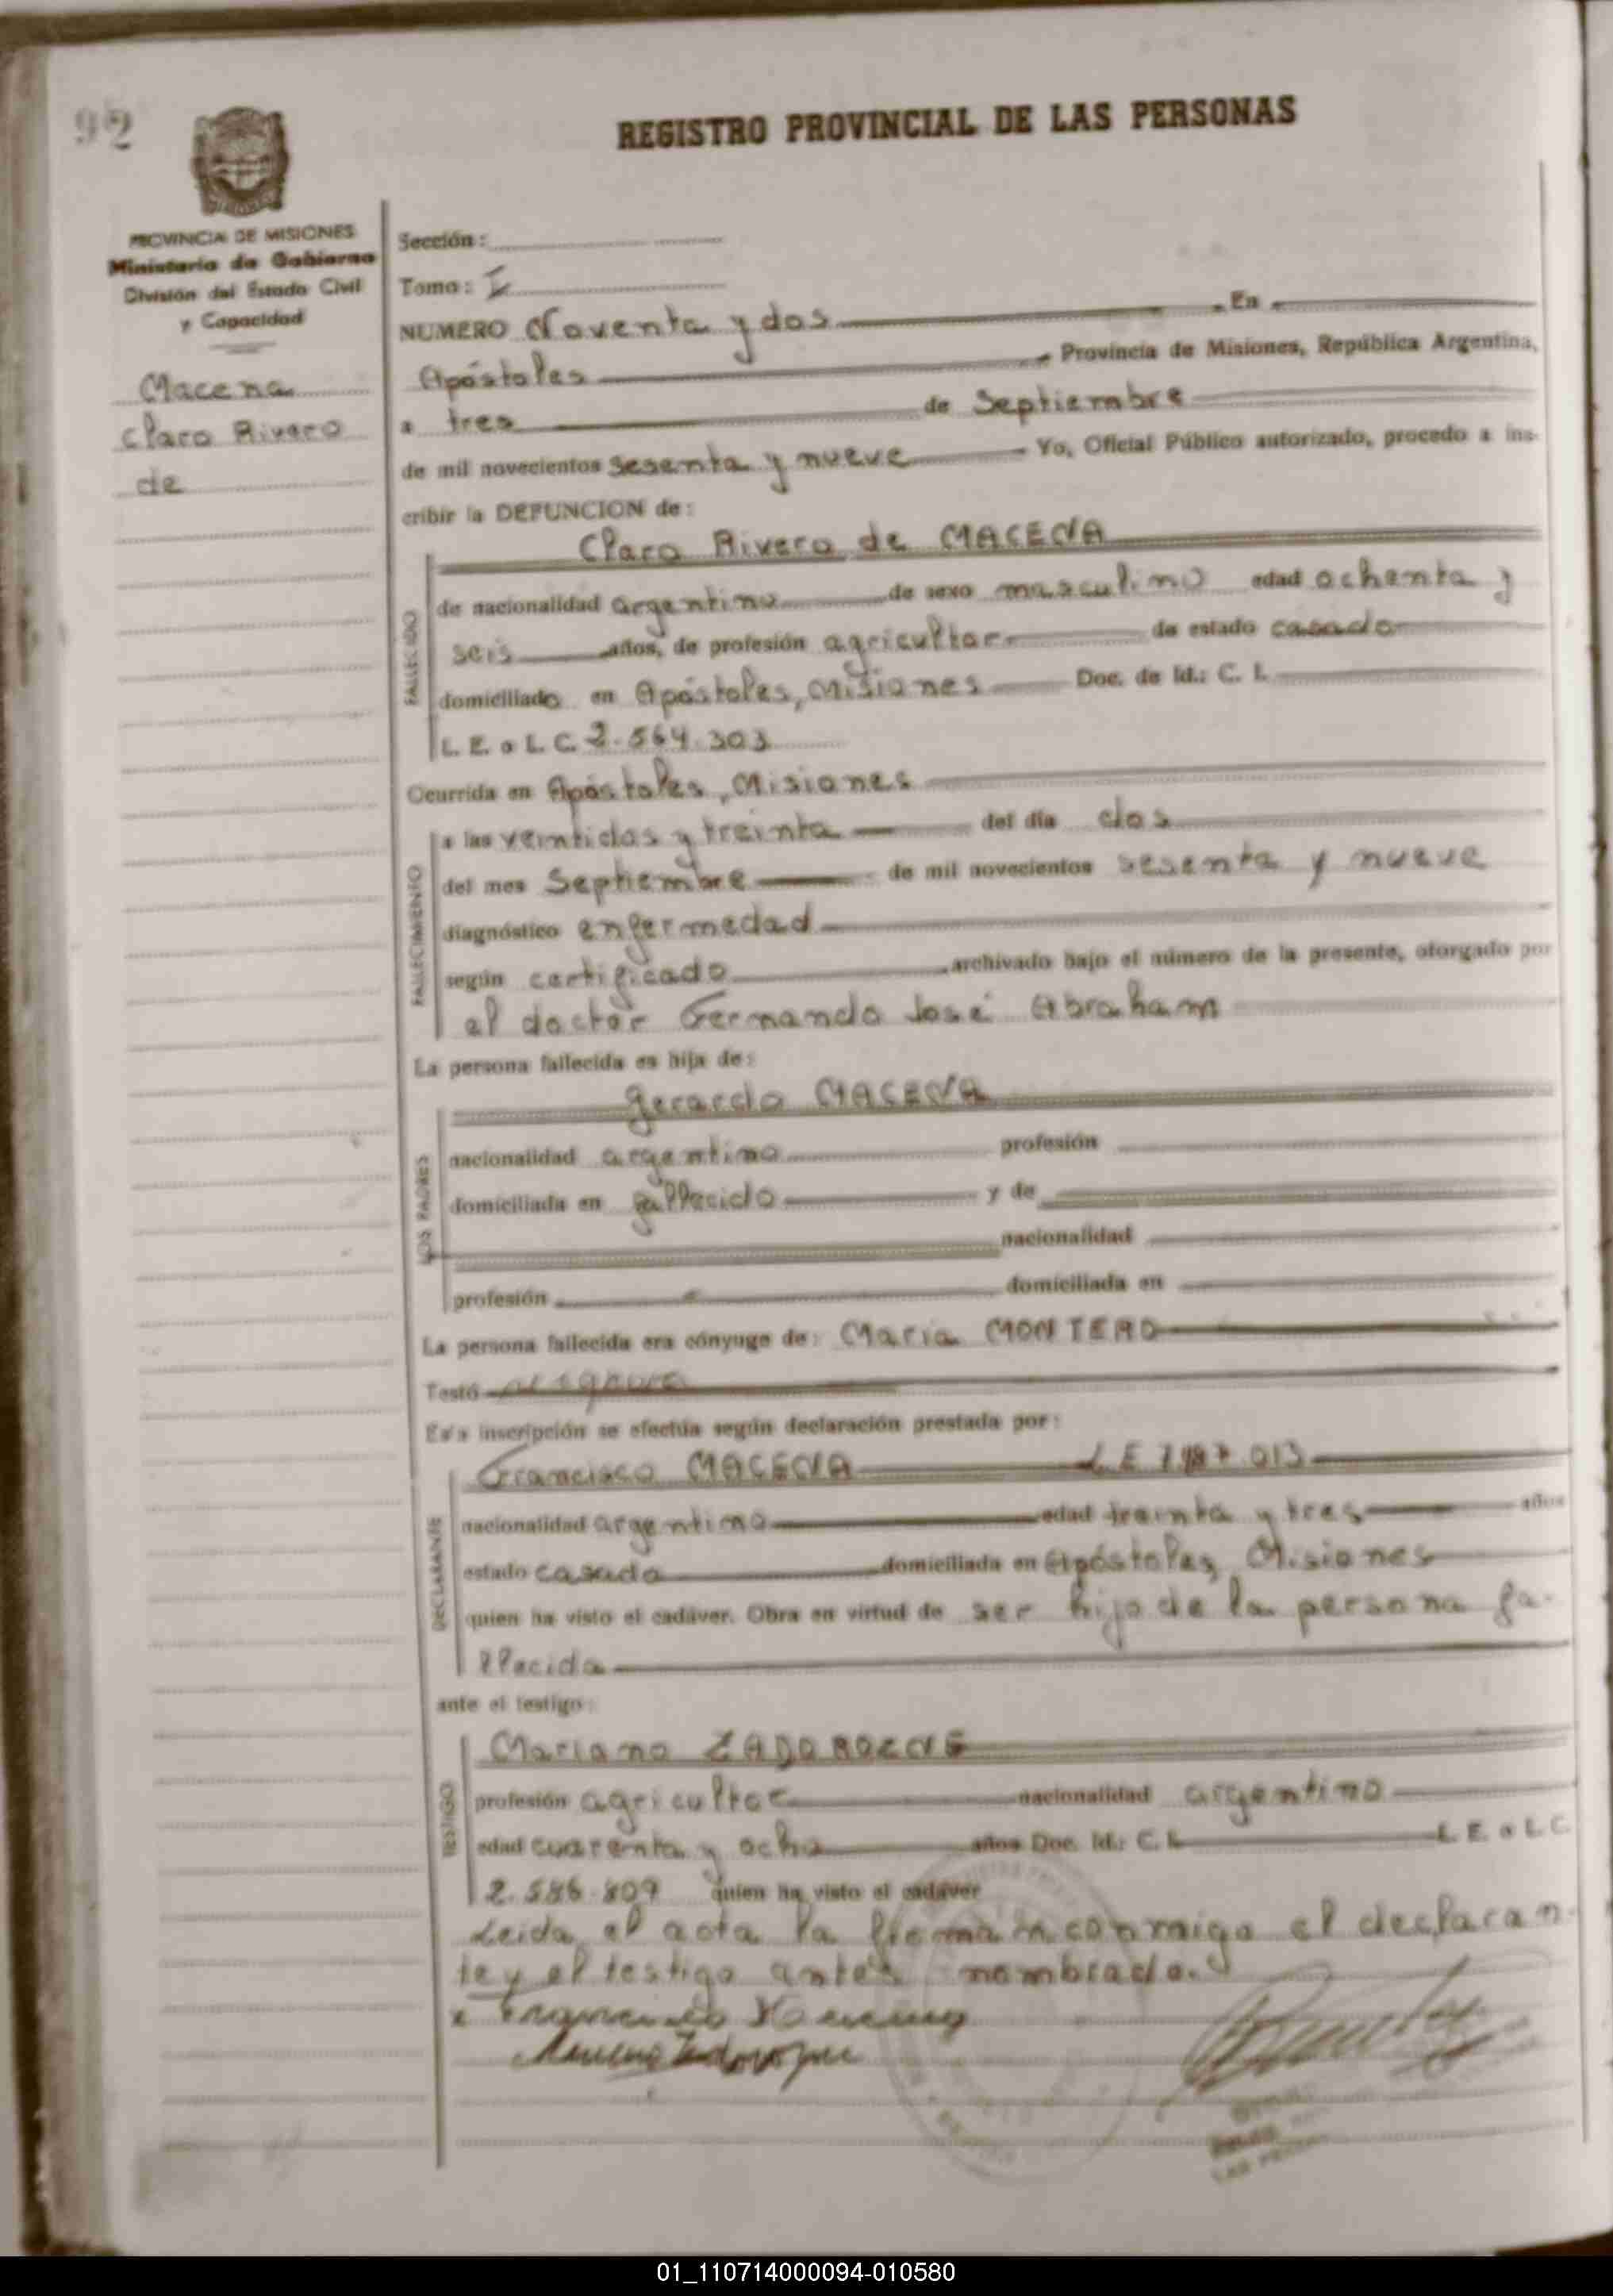 92
REGISTRO PROVINCIAL DE LAS PERSONAS
PROVINCIA DE MISIONES
Ministerio de Gobierno
División del Estado Civil
y Capacidad
Macena
Claro Rivero
de
Sección:
Tomo: I
NUMERO Noventa y dos . En
Apóstoles , Provincia de Misiones, República Argentina,
a tres de Septiembre
de mil novecientos sesenta y nueve Yo, Oficial Público autorizado, procedo a ins-
cribir la DEFUNCION de:
FALLECIDO
Claro Rivero de MACENA
de nacionalidad argentino de sexo masculino edad ochenta y
seis años, de profesión agricultor de estado casado
domiciliado en Apóstoles, Misiones Doc. de Id.: C. I.
L. E. o L. C. 2.564.303
Ocurrida en Apóstoles, Misiones
FALLECIMIENTO
a las veintidos y treinta del día dos
del mes Septiembre de mil novecientos sesenta y nueve
diagnóstico enfermedad
según certificado archivado bajo el número de la presente, otorgado por
el doctor Fernando José Abraham
La persona fallecida es hija de:
LOS PADRES
Gerardo MACENA
nacionalidad argentino profesión
domiciliada en fallecido y de
nacionalidad
profesión domiciliada en
La persona fallecida era cónyuge de: María MONTERO
Testó se ignora
Esta inscripción se efectúa según declaración prestada por:
DECLARANTE
Francisco MACENA L E 7.487.013
nacionalidad argentino edad treinta y tres años
estado casado domiciliada en Apóstoles, Misiones
quien ha visto el cadáver. Obra en virtud de ser hijo de la persona fa-
llecida
ante el testigo:
TESTIGO
Mariano ZADOROZNE
profesión agricultor nacionalidad argentino
edad cuarenta y ocho años Doc. Id.: C. I. L. E. o L. C.
2.586.809 quien ha visto el cadáver
Leida el acta la firman conmigo el declaran-
te y el testigo antes nombrado.
01_110714000094-010580